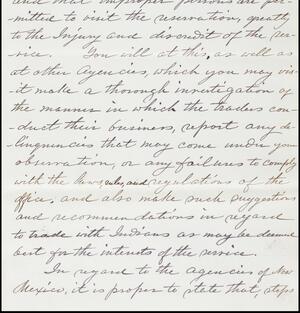 and that improper persons are per-
mitted to visit the reservation, greatly
to the Injury and discredit of the ser-
-vice. You will at this, as well as
at other Agencies, which you may vis-
it make a thorough investigation of
the manner in which the traders con-
-duct their business, report any de-
-linquencies that may come under your
observation, or any failures to comply
with the laws, rules, and regulations of the
office, and also make such suggestions
and recommendations in regard
to trade with Indians as may be deemed
best for the interests of the service.
In regard to the agencies of New
Mexico, it is proper to state that, steps